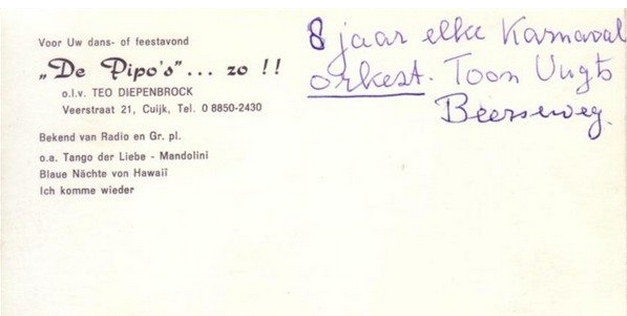 Voor Uw dans- of feestavond
„De Pipo's"... zo !!
o.l.v. TEO DIEPENBROCK
Veerstraat 21, Cuijk, Tel. 0 8850-2430
Bekend van Radio en Gr. pl.
o.a. Tango der Liebe - Mandolini
Blaue Nächte von Hawaiï
Ich komme wieder
8 jaar elke Karnaval
orkest. Toon Vugts
Beerseweg.